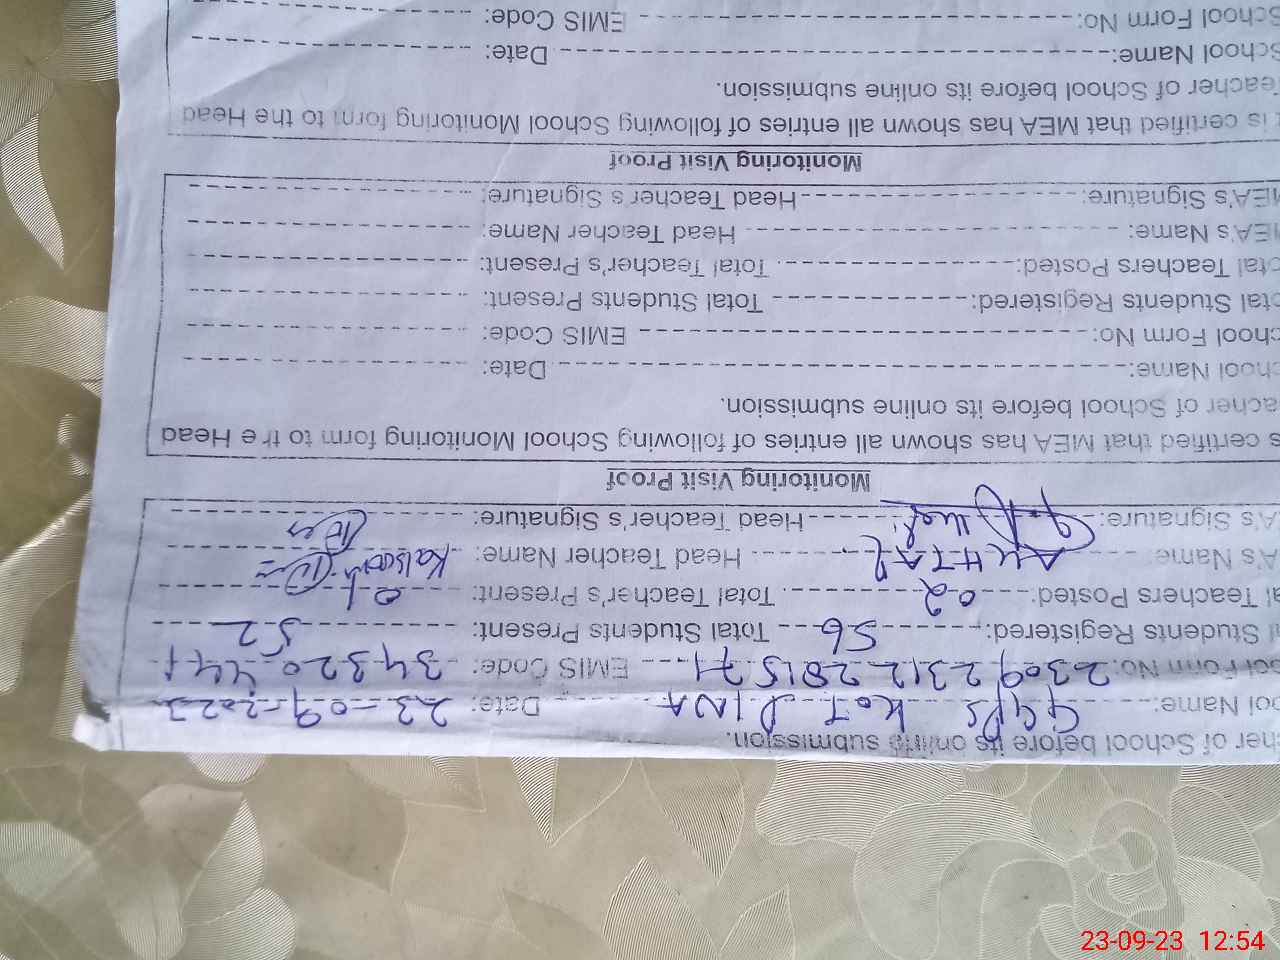 cher of School before its online submission.
ool Name: GGPS KOT DINA Date: 23-09-2023
ool Form No: 23092312281571 EMIS Code: 34320441
l Students Registered: 56 Total Students Present: 52
al Teachers Posted: 02 Total Teacher's Present: 01
A's Name: Head Teacher Name: Kalsoom
A's Signature: Head Teacher's Signature:
Monitoring Visit Proof
s certified that MEA has shown all entries of following School Monitoring form to the Head
acher of School before its online submission.
hool Name: Date:
chool Form No: EMIS Code:
otal Students Registered: Total Students Present:
otal Teachers Posted: Total Teacher's Present:
MEA's Name: Head Teacher Name:
MEA's Signature: Head Teacher's Signature:
Monitoring Visit Proof
t is certified that MEA has shown all entries of following School Monitoring form to the Head
Teacher of School before its online submission.
School Name: Date:
School Form No: EMIS Code:
23-09-23 12:54